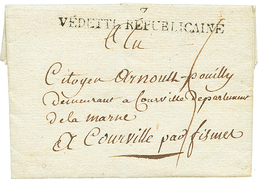 7
VEDETTE REPUBLICAINE
Au
Citoyen Arnoult pouilly
demeurant a Courville departement
de la marne
a Courville par fismes